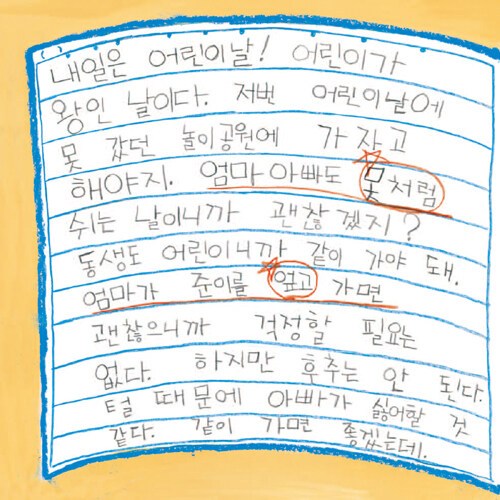 내일은 어린이날! 어린이가
왕인 날이다. 저번 어린이날에
못 갔던 놀이공원에 가자고
해야지. 엄마 아빠도 못처럼
쉬는 날이니까 괜찮겠지?
동생도 어린이니까 같이 가야 돼.
엄마가 준이를 옆고 가면
괜찮으니까 걱정할 필요는
없다. 하지만 후추는 안 된다.
털 때문에 아빠가 싫어할 것
같다. 같이 가면 좋겠는데.